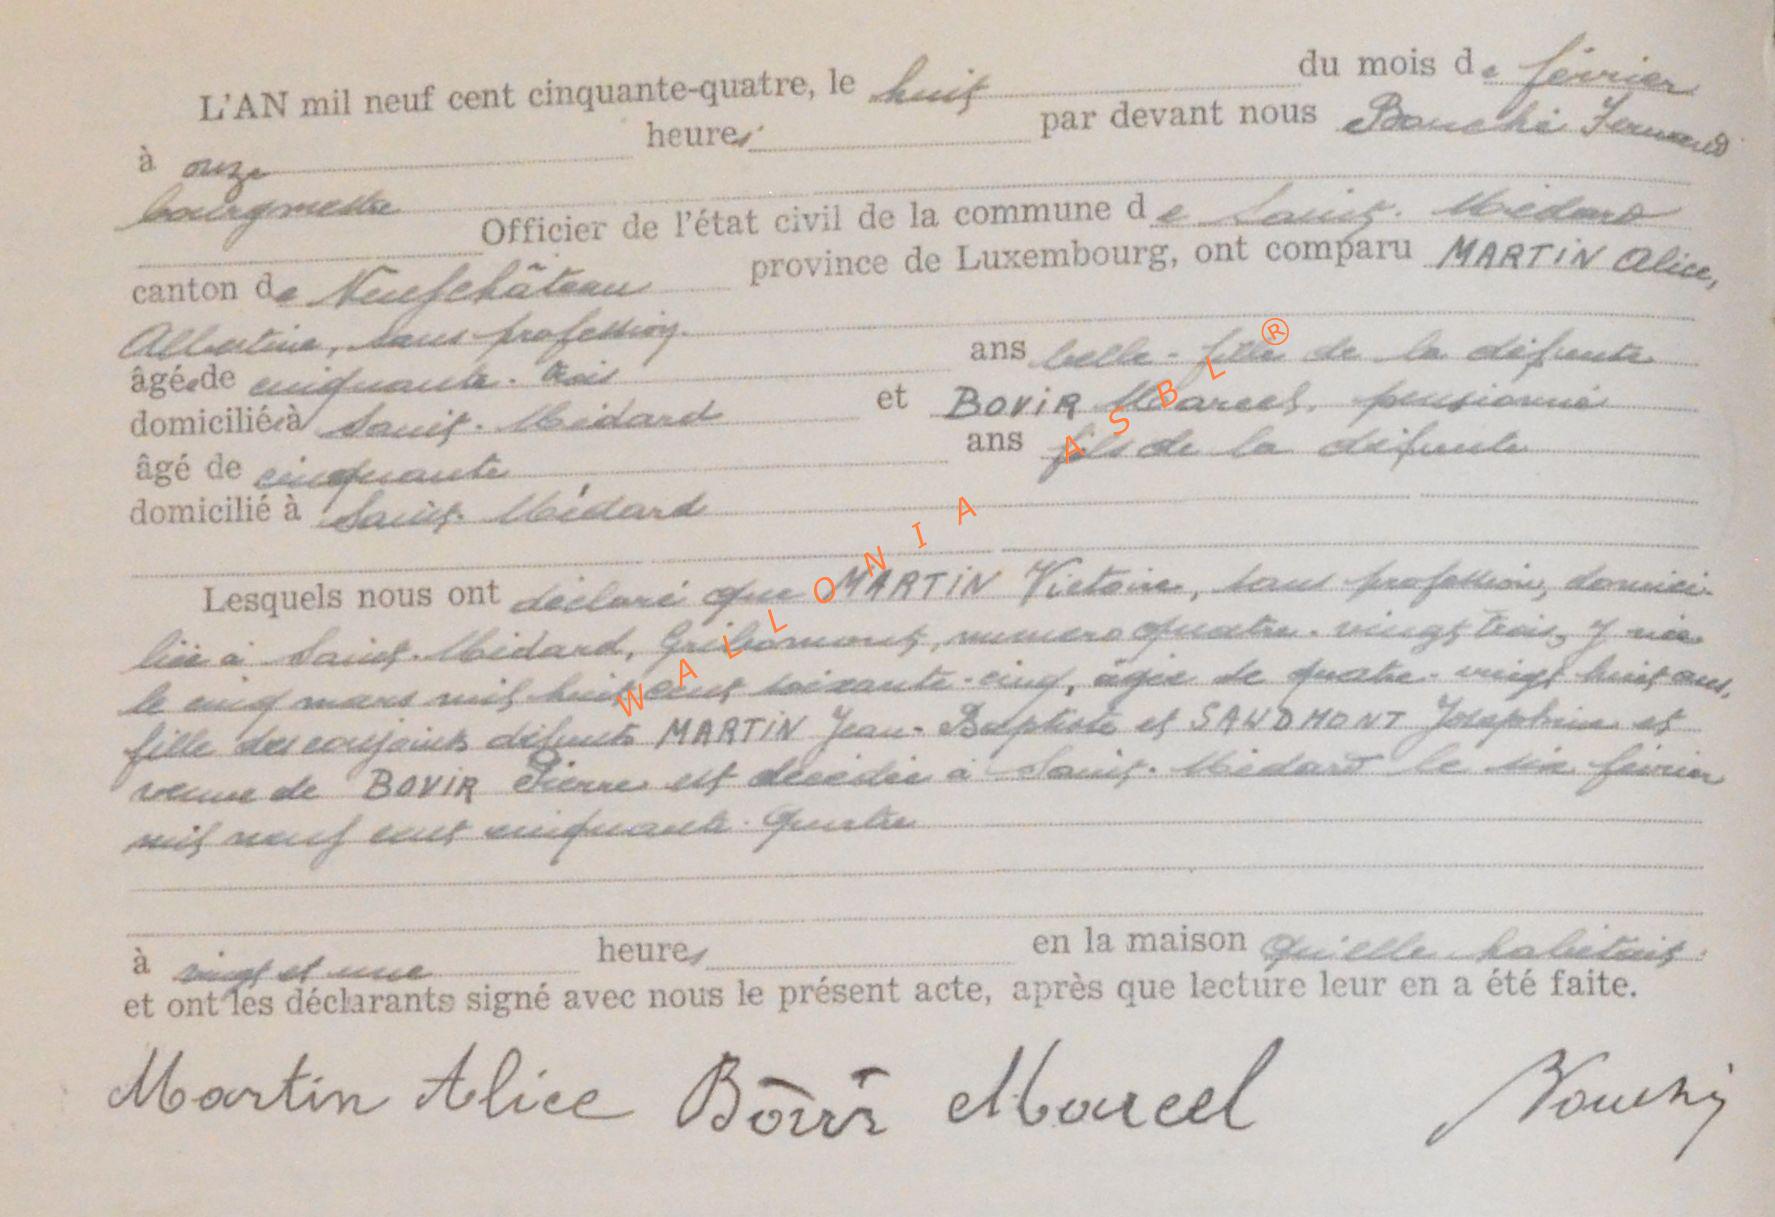 L'AN mil neuf cent cinquante-quatre, le huit du mois de février
à onze heures par devant nous Bouché Fernand
bourgmestre
Officier de l'état civil de la commune de Saint-Médard
canton de Neufchâteau province de Luxembourg, ont comparu MARTIN Alice,
Albertine, sans profession
âgée de cinquante-trois ans belle-fille de la défunte
domiciliée à Saint-Médard et BOVIR Marcel, pensionné
âgé de cinquante ans fils de la défunte
domicilié à Saint-Médard
Lesquels nous ont déclaré que MARTIN Victoire, sans profession, domici-
liée à Saint-Médard, Gribomont, numéro quatre-vingt trois, y née
le cinq mars mil huit cent soixante-cinq, âgée de quatre-vingt huit ans,
fille des conjoints défunts MARTIN Jean-Baptiste et SAUDMONT Joséphine et
veuve de BOVIR Pierre est décédée à Saint-Médard le six février
mil neuf cent cinquante-quatre
à vingt et une heures en la maison qu'elle habitait.
et ont les déclarants signé avec nous le présent acte, après que lecture leur en a été faite.
Martin Alice Bovir Marcel Bouché
WALLONIA ASBL®